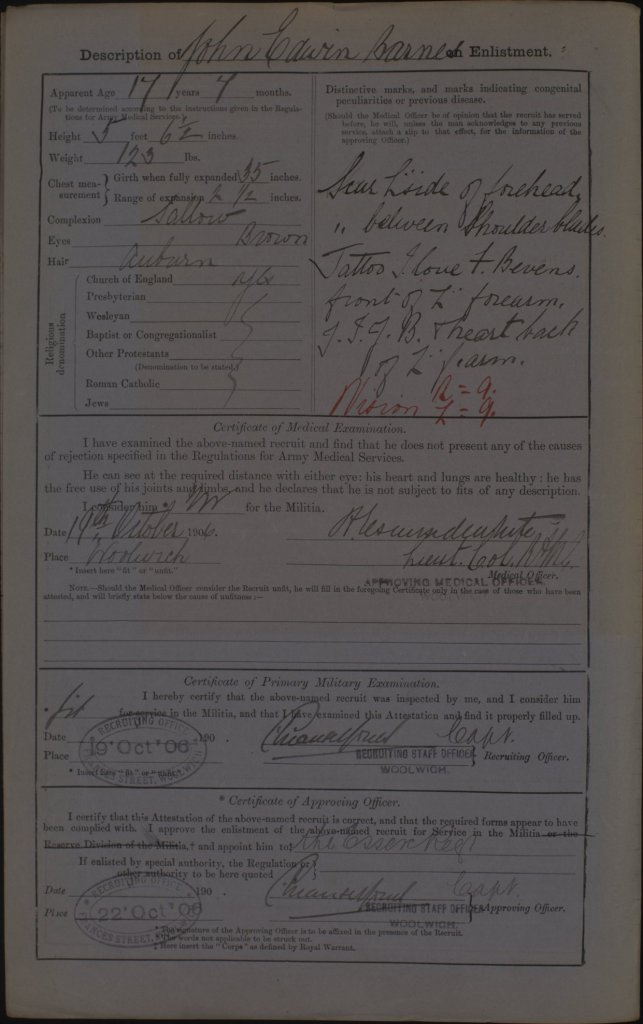 Description of John Edwin Barnes on Enlistment.
Apparent Age 17 years 7 months.
(To be determined according to the instructions given in the Regulations for Army Medical Services.)
Height 5 feet 6½ inches.
Weight 123 lbs.
Chest measurement { Girth when fully expanded 35 inches.
Range of expansion 2 ½ inches.
Complexion Sallow
Eyes Brown
Hair Auburn
Religious denomination
Church of England
Presbyterian
Wesleyan
Baptist or Congregationalist
Other Protestants
(Denomination to be stated)
Roman Catholic
Jews
Distinctive marks, and marks indicating congenital
peculiarities or previous disease.
(Should the Medical Officer be of opinion that the recruit has served
before, he will, unless the man acknowledges to any previous
service, attach a slip to that effect, for the information of the
approving Officer.)
Scar L. side of forehead,
" between Shoulder blades.
Tattoo I love F. Bevens.
front of L forearm.
J. F. J. B. & heart back
of L f'arm.
Vision R = 9.
L = 9.
Certificate of Medical Examination.
I have examined the above-named recruit and find that he does not present any of the causes
of rejection specified in the Regulations for Army Medical Services.
He can see at the required distance with either eye; his heart and lungs are healthy; he has
the free use of his joints and limbs, and he declares that he is not subject to fits of any description.
I consider him * for the Militia.
Date 19th October 1906.
Place Woolwich Lieut. Col. R.A.M.C.
Medical Officer.
* Insert here "fit" or "unfit."
APPROVING MEDICAL OFFICER.
WOOLWICH
NOTE.—Should the Medical Officer consider the Recruit unfit, he will fill in the foregoing Certificate only in the case of those who have been
attested, and will briefly state below the cause of unfitness:—
Certificate of Primary Military Examination.
I hereby certify that the above-named recruit was inspected by me, and I consider him
* fit for service in the Militia, and that I have examined this Attestation and find it properly filled up.
Date 190 . Capt.
Place Recruiting Officer.
* Insert here "fit" or "unfit."
RECRUITING OFFICE
19 Oct 06
FRANCES STREET, WOOLWICH
RECRUITING STAFF OFFICER
WOOLWICH.
* Certificate of Approving Officer.
I certify that this Attestation of the above-named recruit is correct, and that the required forms appear to have
been complied with. I approve the enlistment of the above-named recruit for Service in the Militia or the
Reserve Division of the Militia,† and appoint him to‡ the Essex Regt
If enlisted by special authority, the Regulation or
other authority to be here quoted
Date 190 . Capt.
Place Approving Officer.
RECRUITING OFFICE
22 Oct 06
FRANCES STREET,
RECRUITING STAFF OFFICER
WOOLWICH.
* The signature of the Approving Officer is to be affixed in the presence of the Recruit.
† The words not applicable to be struck out.
‡ Here insert the "Corps" as defined by Royal Warrant.